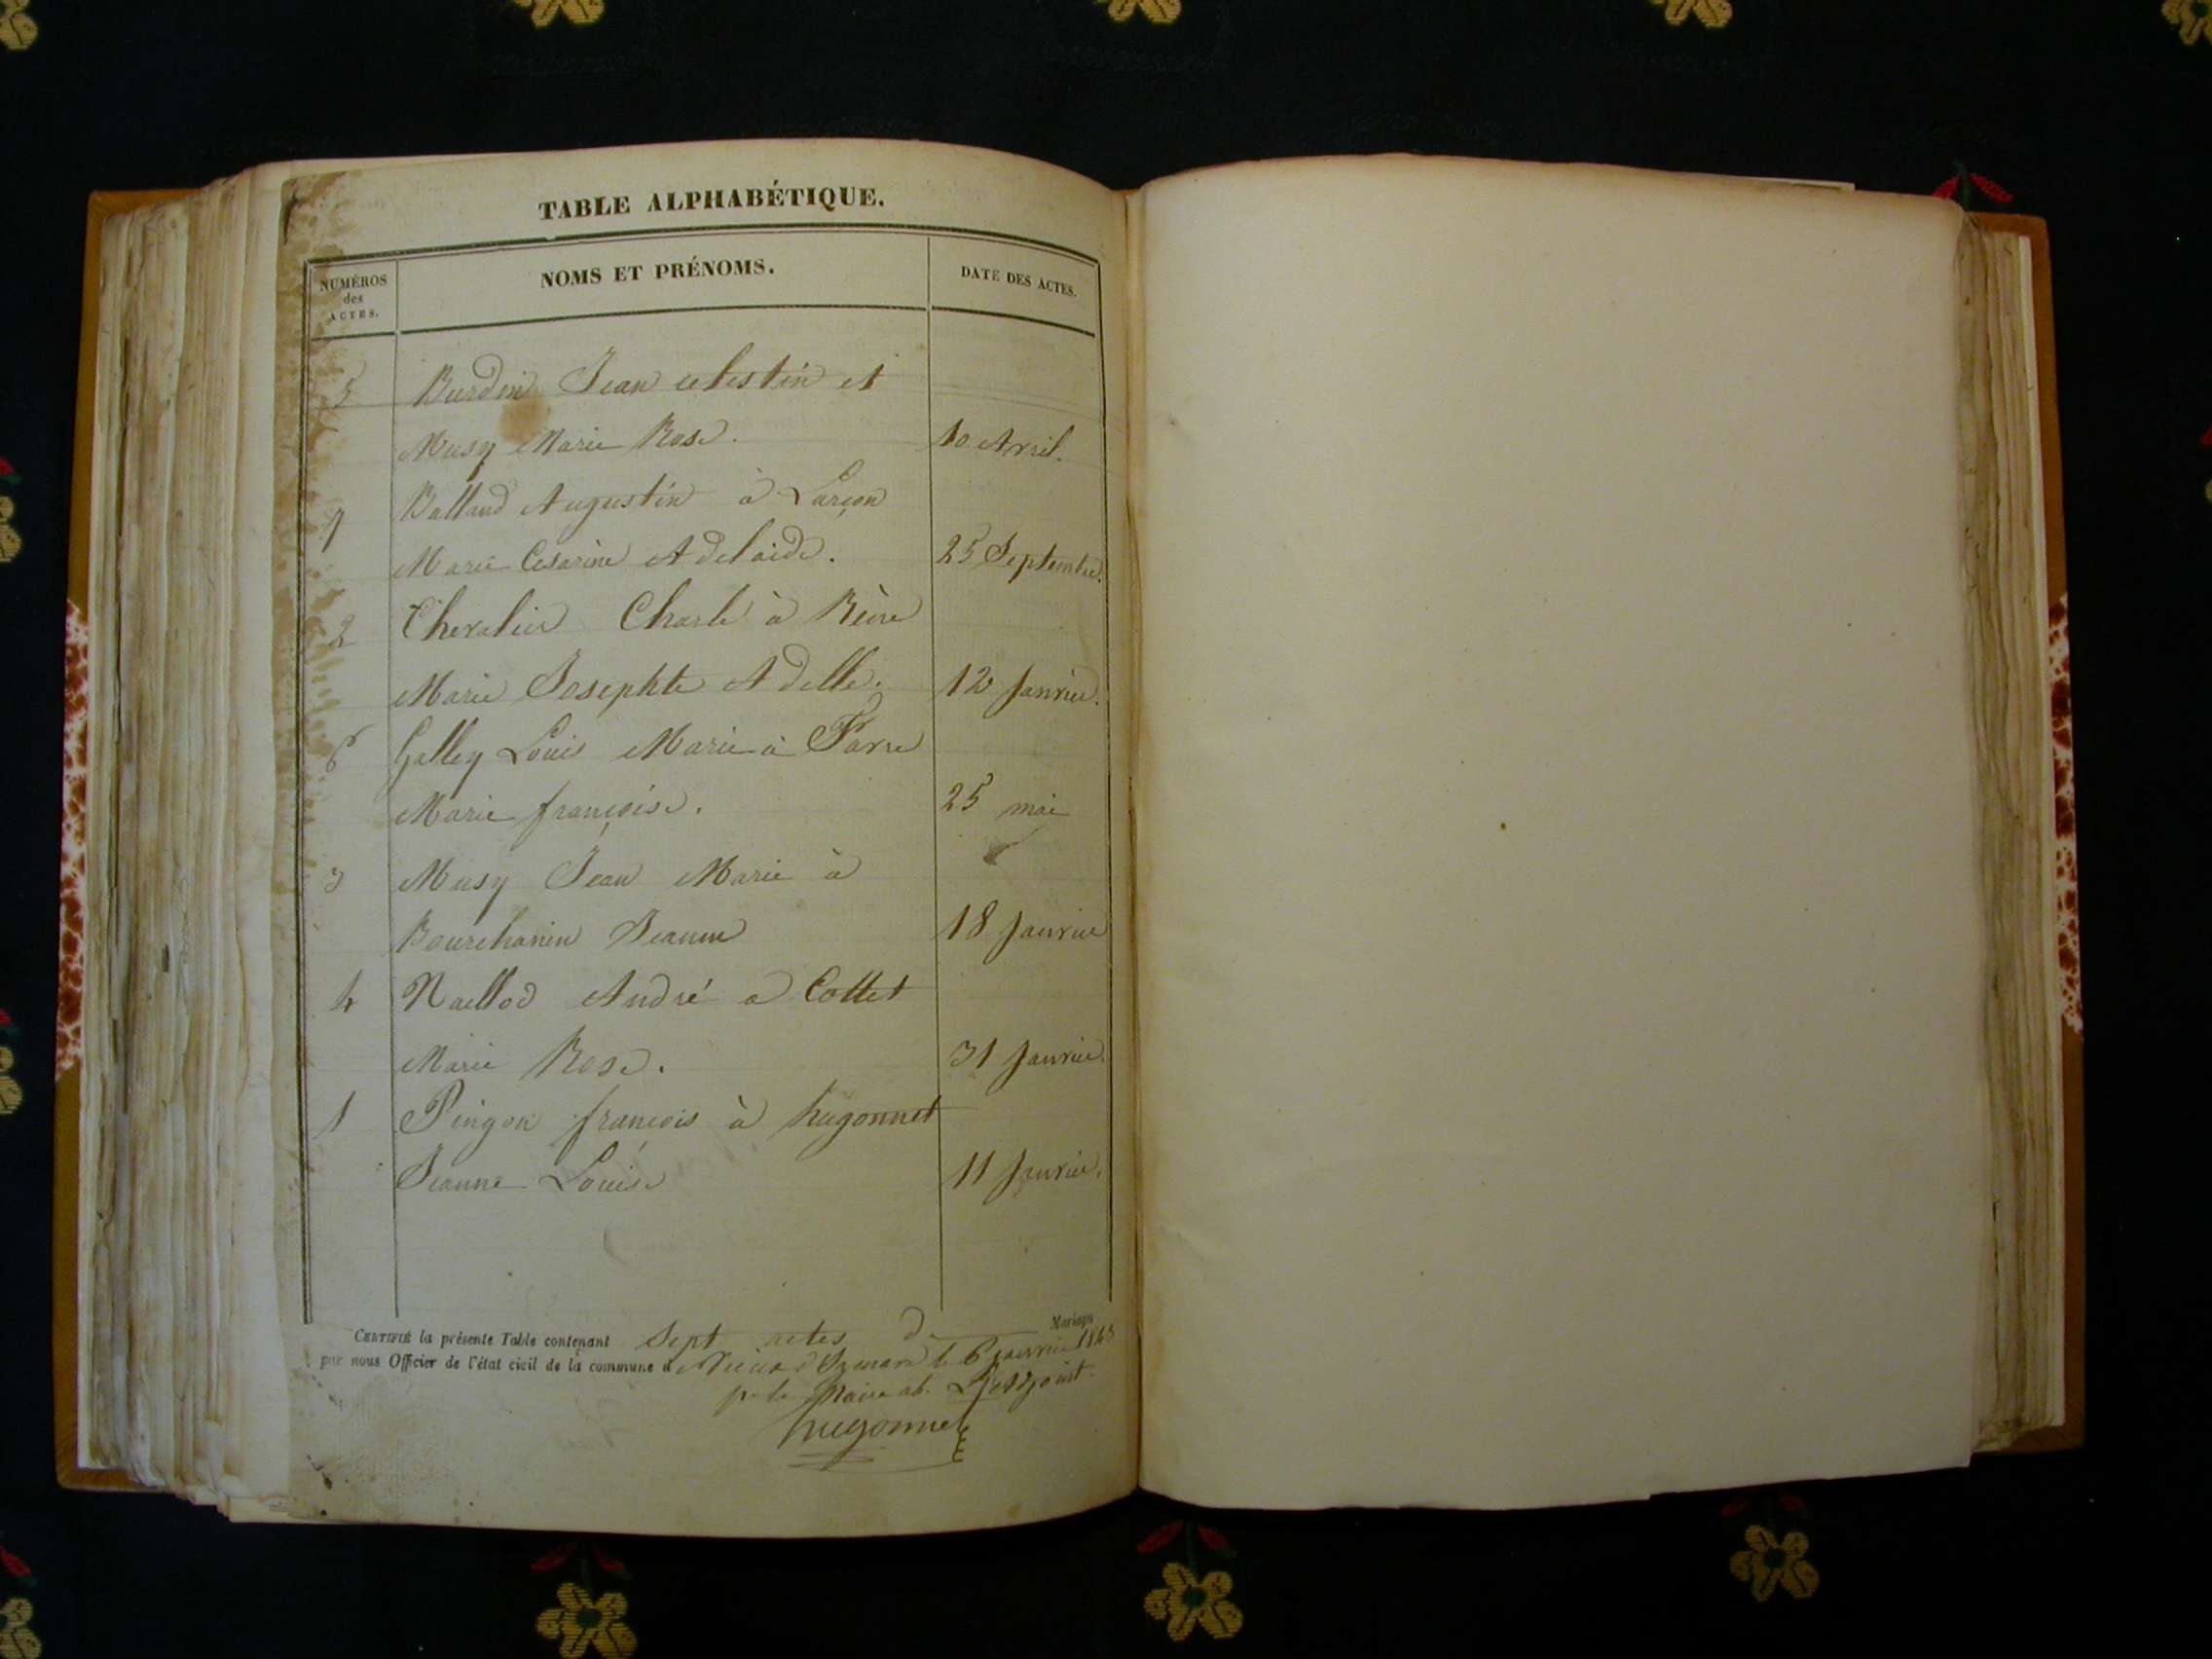 TABLE ALPHABÉTIQUE.
NUMÉROS des ACTES.
NOMS ET PRÉNOMS.
DATE DES ACTES.
5 Burdin Jean celestin et
Musy Marie Rose. 10 Avril.
7 Balland Augustin à Larçon
Marie Cesarine Adelaide. 25 Septembre.
2 Chevalier Charle à Rêve
Marie Josephte Adelle. 12 Janvier.
6 Galley Louis Marie à Favre
Marie françoise. 25 mai
3 Musy Jean Marie à
Bourchanin Jeanne 18 Janvier
4 Naillod André a Cottet
Marie Rose. 31 Janvier.
1 Pingon francois à hugonnet
Jeanne Louise 11 Janvier.
CERTIFIÉ la présente Table contenant Sept actes de Mariage
par nous Officier de l'état civil de la commune de Vieux d'Izenave le 6 janvier 1843
p. le Maire ab. L'adjoint.
hugonnet